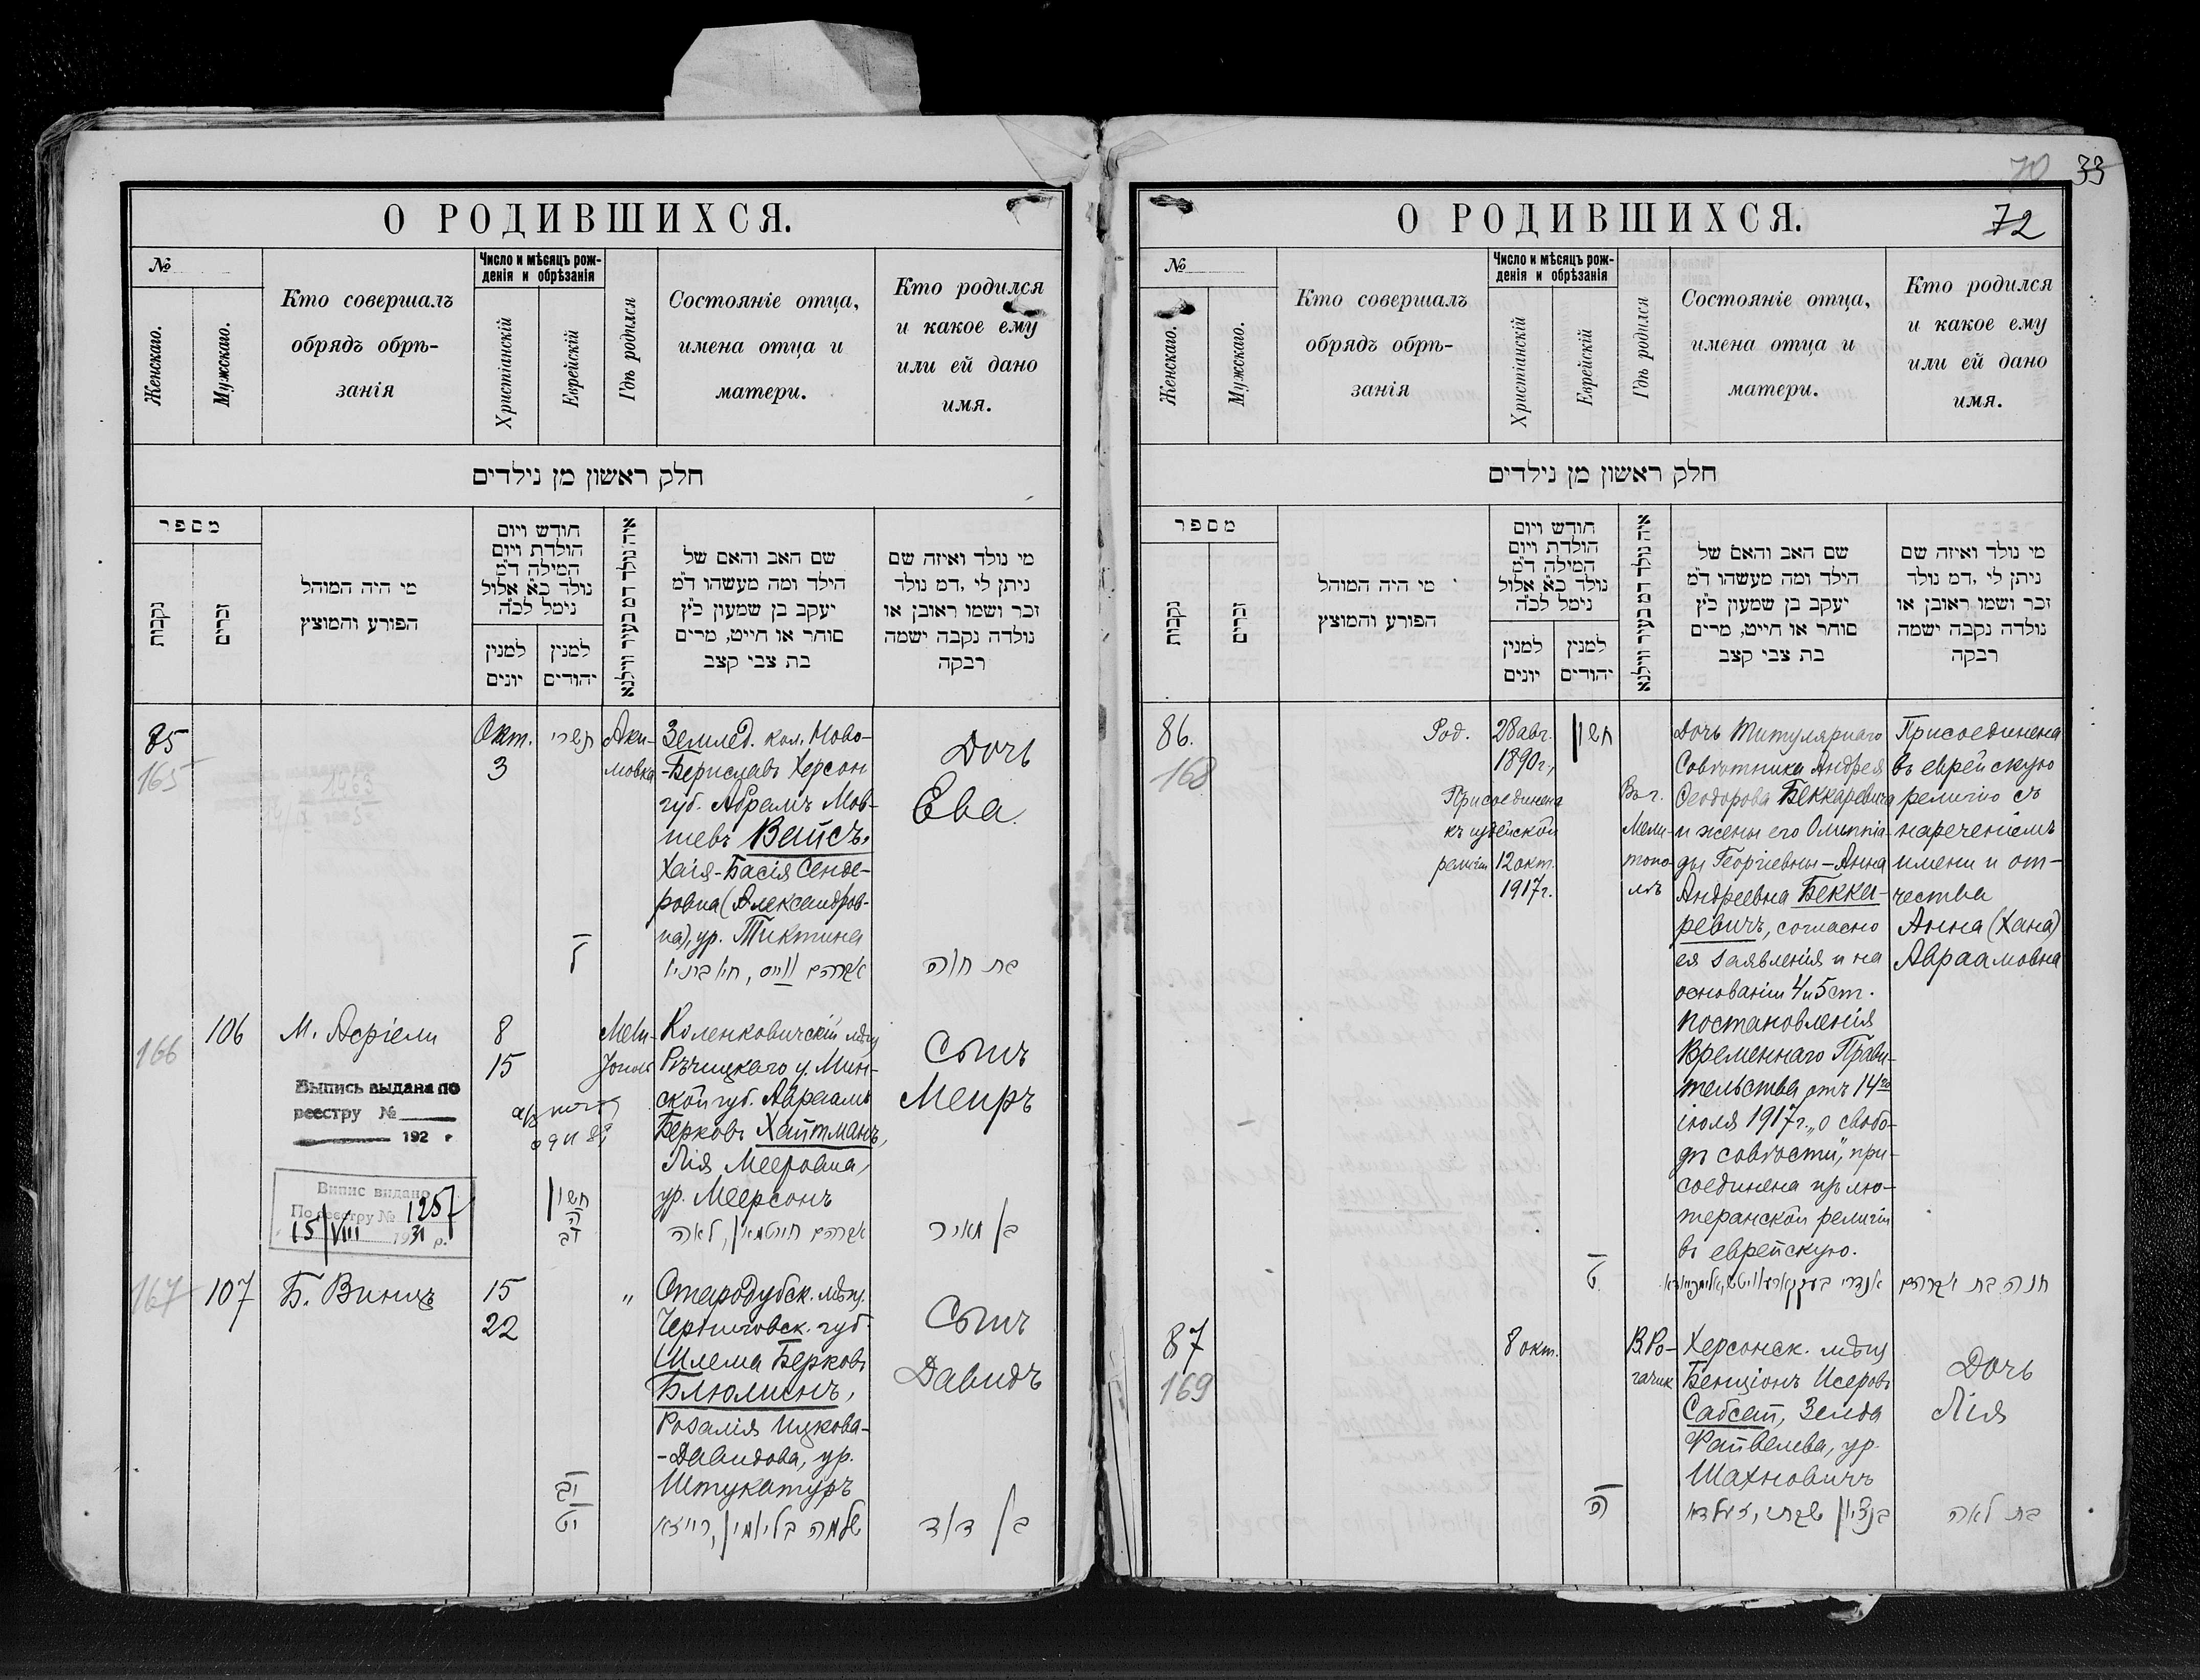 70 33
О РОДИВШИХСЯ.
№
Женскаго.
Мужскаго.
Кто совершалъ
обрядъ обрѣ-
занія
Число и мѣсяцъ рож-
денія и обрѣзанія
Христіанскій
Еврейскій
Гдѣ родился
Состояніе отца,
имена отца и
матери.
Кто родился
и какое ему
или ей дано
имя.
חלק ראשון מן נילדים
מספר
נקבות
זכרים
מי היה המוהל
הפורע והמוצץ
חודש ויום
הולדת ויום
המילה ד״מ
נולד כ״א אלול
נימל לכ״ה
למנין
יונים
למנין
יהודים
איה נולד דמ בעיר ווילנא
שם האב והאם של
הילד ומה מעשהו ד״מ
יעקב בן שמעון כ״ץ
סוחר או חייט, מרים
בת צבי קצב
מי נולד ואיזה שם
ניתן לי, דמ נולד
זכר ושמו ראובן או
נולדה נקבה ישמה
רבקה
85
165
Окт.
3
תשרי
Аки-
мовка
Землед. кол. Ново-
-Бериславъ Херсон
губ. Абрамъ Мов-
шевъ Вейсъ,
Хая-Басія Сенде-
ровна (Александров-
на), ур. Тиктина
אברהם ווייס,
Дочь
Ева
בת חוה
166
106
М. Асріели
8
15
Мели-
тополь
Коленковичскій мѣщ
Рѣчицкаго у. Мин-
ской губ. Авраамъ
Берковъ Хайтманъ,
Лія Мееровна,
ур. Меерсонъ
אברהם חייטמאן, לאה
Сынъ
Меиръ
בן מאיר
Выпись выдана по
реестру №
192 г
Випис видано
По реестру № 1257
15/VIII 1931 р.
חשון
167
107
Б. Винцъ
15
22
"
Стародубск. мѣщ.
Черниговск. губ.
Шлема Берковъ
Блюминъ,
Розалія Ицкова-
-Давидова, ур.
Штукатуръ
שלמה בליומין, רייזא
יב
יט
Сынъ
Давидъ
בן דוד
О РОДИВШИХСЯ.
72
№
Женскаго.
Мужскаго.
Кто совершалъ
обрядъ обрѣ-
занія
Число и мѣсяцъ рож-
денія и обрѣзанія
Христіанскій
Еврейскій
Гдѣ родился
Состояніе отца,
имена отца и
матери.
Кто родился
и какое ему
или ей дано
имя.
חלק ראשון מן נילדים
מספר
נקבות
זכרים
מי היה המוהל
הפורע והמוצץ
חודש ויום
הולדת ויום
המילה ד״מ
נולד כ״א אלול
נימל לכ״ה
למנין
יונים
למנין
יהודים
איה נולד דמ בעיר ווילנא
שם האב והאם של
הילד ומה מעשהו ד״מ
יעקב בן שמעון כ״ץ
סוחר או חייט, מרים
בת צבי קצב
מי נולד ואיזה שם
ניתן לי, דמ נולד
זכר ושמו ראובן או
נולדה נקבה ישמה
רבקה
86.
168
Род. 28 авг.
1890 г.,
Присоединена
къ иудейской
религіи 12 окт.
1917 г.
חשון
ט
Въ г.
Мели-
топо-
лѣ
Дочь Титулярнаго
Совѣтника Андрея
Ѳеодорова Беккаревича
и жены его Олимпіа-
ды Георгіевны – Анна
Андреевна Бекка-
ревичъ, согласно
ея заявленія и на
основаніи 4 и 5 ст.
постановленія
Временнаго Прави-
тельства отъ 14го
іюля 1917 г. „о свобо-
дѣ совѣсти“, при-
соединена изъ лю-
теранской религіи
въ еврейскую.
Присоединена
въ еврейскую
религію съ
нареченіемъ
имени и от-
чества
Анна (Хана)
Авраамовна
חנה בת אברהם
87
169
8 окт.
ה
В. Ро-
гачик
Херсонск. мѣщ
Бенціонъ Исеровъ
Сабсай, Зелда
Файвелева, ур.
Шахновичъ
בנציון שבתי, זעלדא
Дочь
Лія
בת לאה